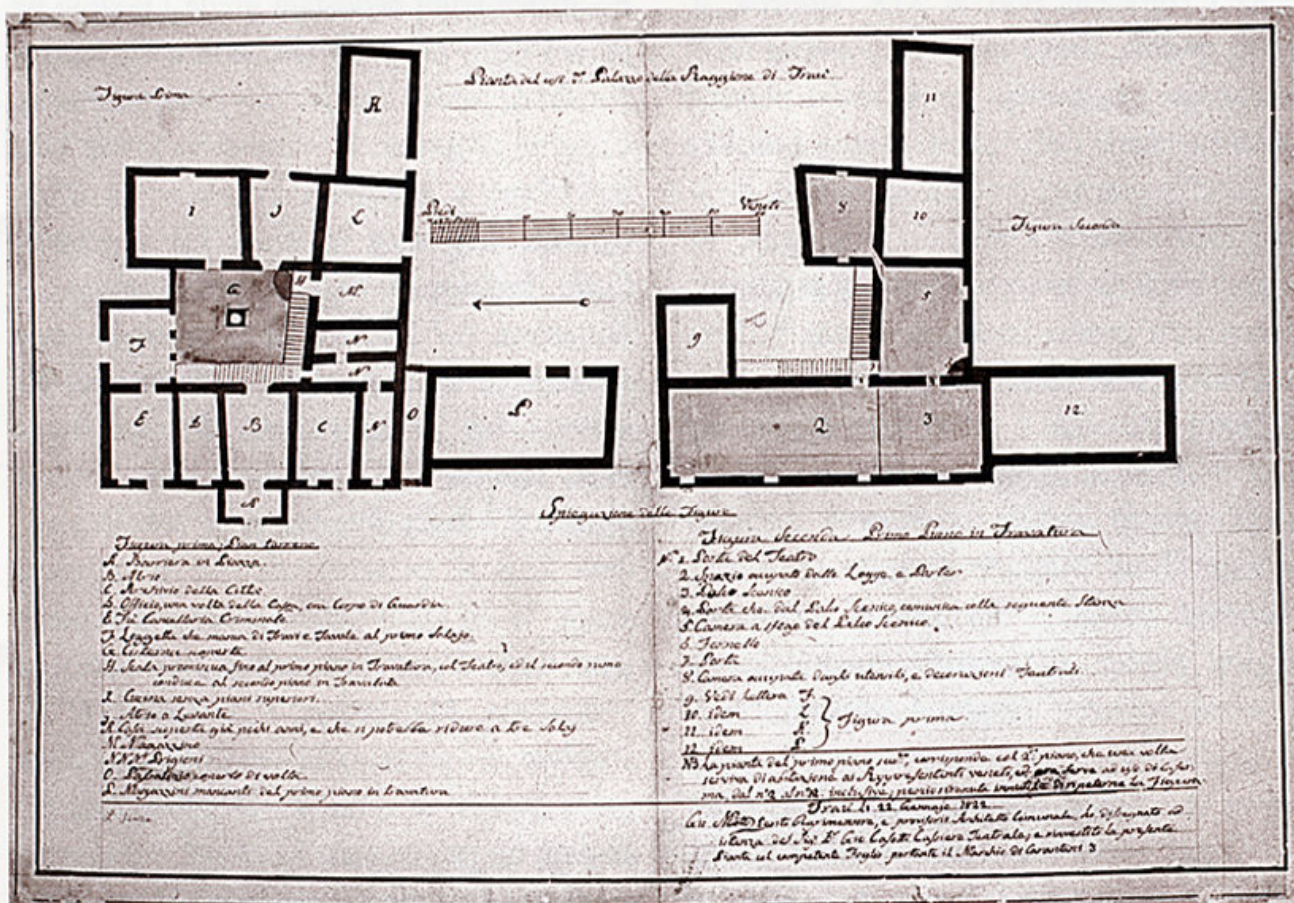 Figura Prima
Pianta del Palazzo della Raggione di Traù
Figura Seconda
Piedi Veneti
K
I
J
L
G
H
M
F
N
N
E
D
B
C
N
O
P
A
11
8
10
5
9
2
3
12
Spiegazione delle Figure
Figura prima; Pian terreno
A. Barriera in Piazza.
B. Atrio
C. Archivio della Città
D. Officio, una volta della, ora Corpo di Guardia.
E. Fù Cancelleria Criminale
F. Loggetta che manca di Travi e Tavole al primo Solajo.
G. Cisterna
H. Scala fino al primo piano in Travatura, col Teatro, ed il secondo
conduce al secondo piano in Travatura
I. Cucina senza piani superiori.
J. Atrio a Levante
K. Casa già pochi anni, e che si potrebbe ridurre a tre Solaj
M. Magazzino
N.N.N. Prigioni
O. di volta
P. Magazzini mancanti del primo piano in travatura
Figura Seconda Primo Piano in Travatura
N.º 1. Porta del Teatro
2. Spazio occupato dalle Logge e Platea
3. Palco Scenico
4. Porta che dal Palco Scenico, comunica colla seguente Stanza
5. Camera a sfogo del Palco Scenico.
6. Fornello
7. Porta
8. Camera occupata dagli utensili, e decorazioni Teatrali.
9. Vedi Lettera F.
10. idem L
11. idem K
12. idem P
Figura prima.
NB. La pianta del primo piano, corrisponde col 2º piano, che una volta
serviva di abitazione ai Rappresentanti veneti, ed ora serve ad uso di
dal nº 2 al nº 12 inclusive,
Traù li 22 Gennajo 1822
e provisorio Architetto Comunale, ho disegnato ad
istanza del Cassiere Teatrale; e la presente
Pianta col competente Foglio portante il Marchio di Carantani 3